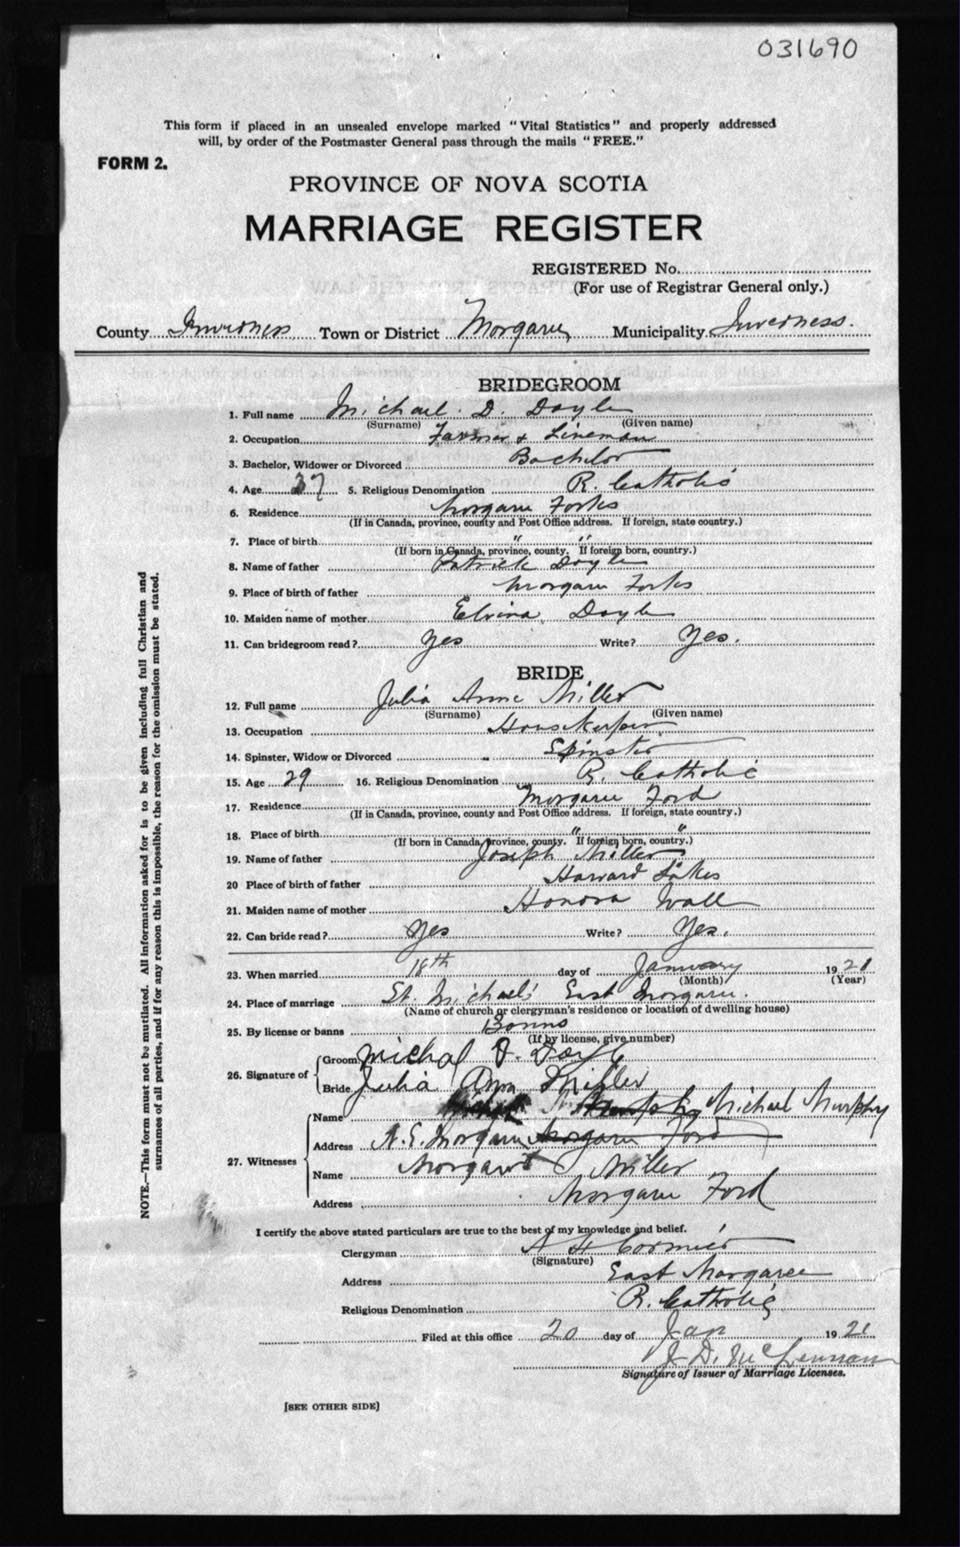 031690
This form if placed in an unsealed envelope marked "Vital Statistics" and properly addressed
will, by order of the Postmaster General pass through the mails "FREE."
FORM 2.
PROVINCE OF NOVA SCOTIA
MARRIAGE REGISTER
REGISTERED No.
(For use of Registrar General only.)
County Inverness Town or District Margaree Municipality Inverness.
BRIDEGROOM
1. Full name Michael D. Doyle
(Surname) (Given name)
2. Occupation Farmer & Lineman
3. Bachelor, Widower or Divorced Bachelor
4. Age 37 5. Religious Denomination R. Catholic
6. Residence Margaree Forks
(If in Canada, province, county and Post Office address. If foreign, state country.)
7. Place of birth " "
(If born in Canada, province, county. If foreign born, country.)
8. Name of father Patrick Doyle
9. Place of birth of father Margaree Forks
10. Maiden name of mother Elvina Doyle
11. Can bridegroom read? Yes Write? Yes.
BRIDE
12. Full name Julia Anne Miller
(Surname) (Given name)
13. Occupation Housekeeper
14. Spinster, Widow or Divorced Spinster
15. Age 29 16. Religious Denomination R. Catholic
17. Residence Margaree Ford
(If in Canada, province, county and Post Office address. If foreign, state country.)
18. Place of birth " "
(If born in Canada, province, county. If foreign born, country.)
19. Name of father Joseph Miller
20 Place of birth of father Harvard Lakes
21. Maiden name of mother Honora Wall
22. Can bride read? Yes Write? Yes.
23. When married 18th day of January 1921
(Month) (Year)
24. Place of marriage St. Michael's East Margaree.
(Name of church or clergyman's residence or location of dwelling house)
25. By license or banns Banns
(If by license, give number)
26. Signature of Groom Michal D. Doyle
Bride Julia Ann Miller
27. Witnesses
Name Murphy Michael Murphy
Address N.E. Margaree Margaree Ford
Name Margaret Miller
Address Margaree Ford
I certify the above stated particulars are true to the best of my knowledge and belief.
Clergyman A H Cormier
(Signature)
Address East Margaree
Religious Denomination R. Catholic
Filed at this office 20 day of Jan 1921
J. D. McLennan
Signature of Issuer of Marriage Licenses.
[SEE OTHER SIDE]
NOTE.—This form must not be mutilated. All information asked for is to be given including full Christian and
surnames of all parties, and if for any reason this is impossible, the reason for the omission must be stated.